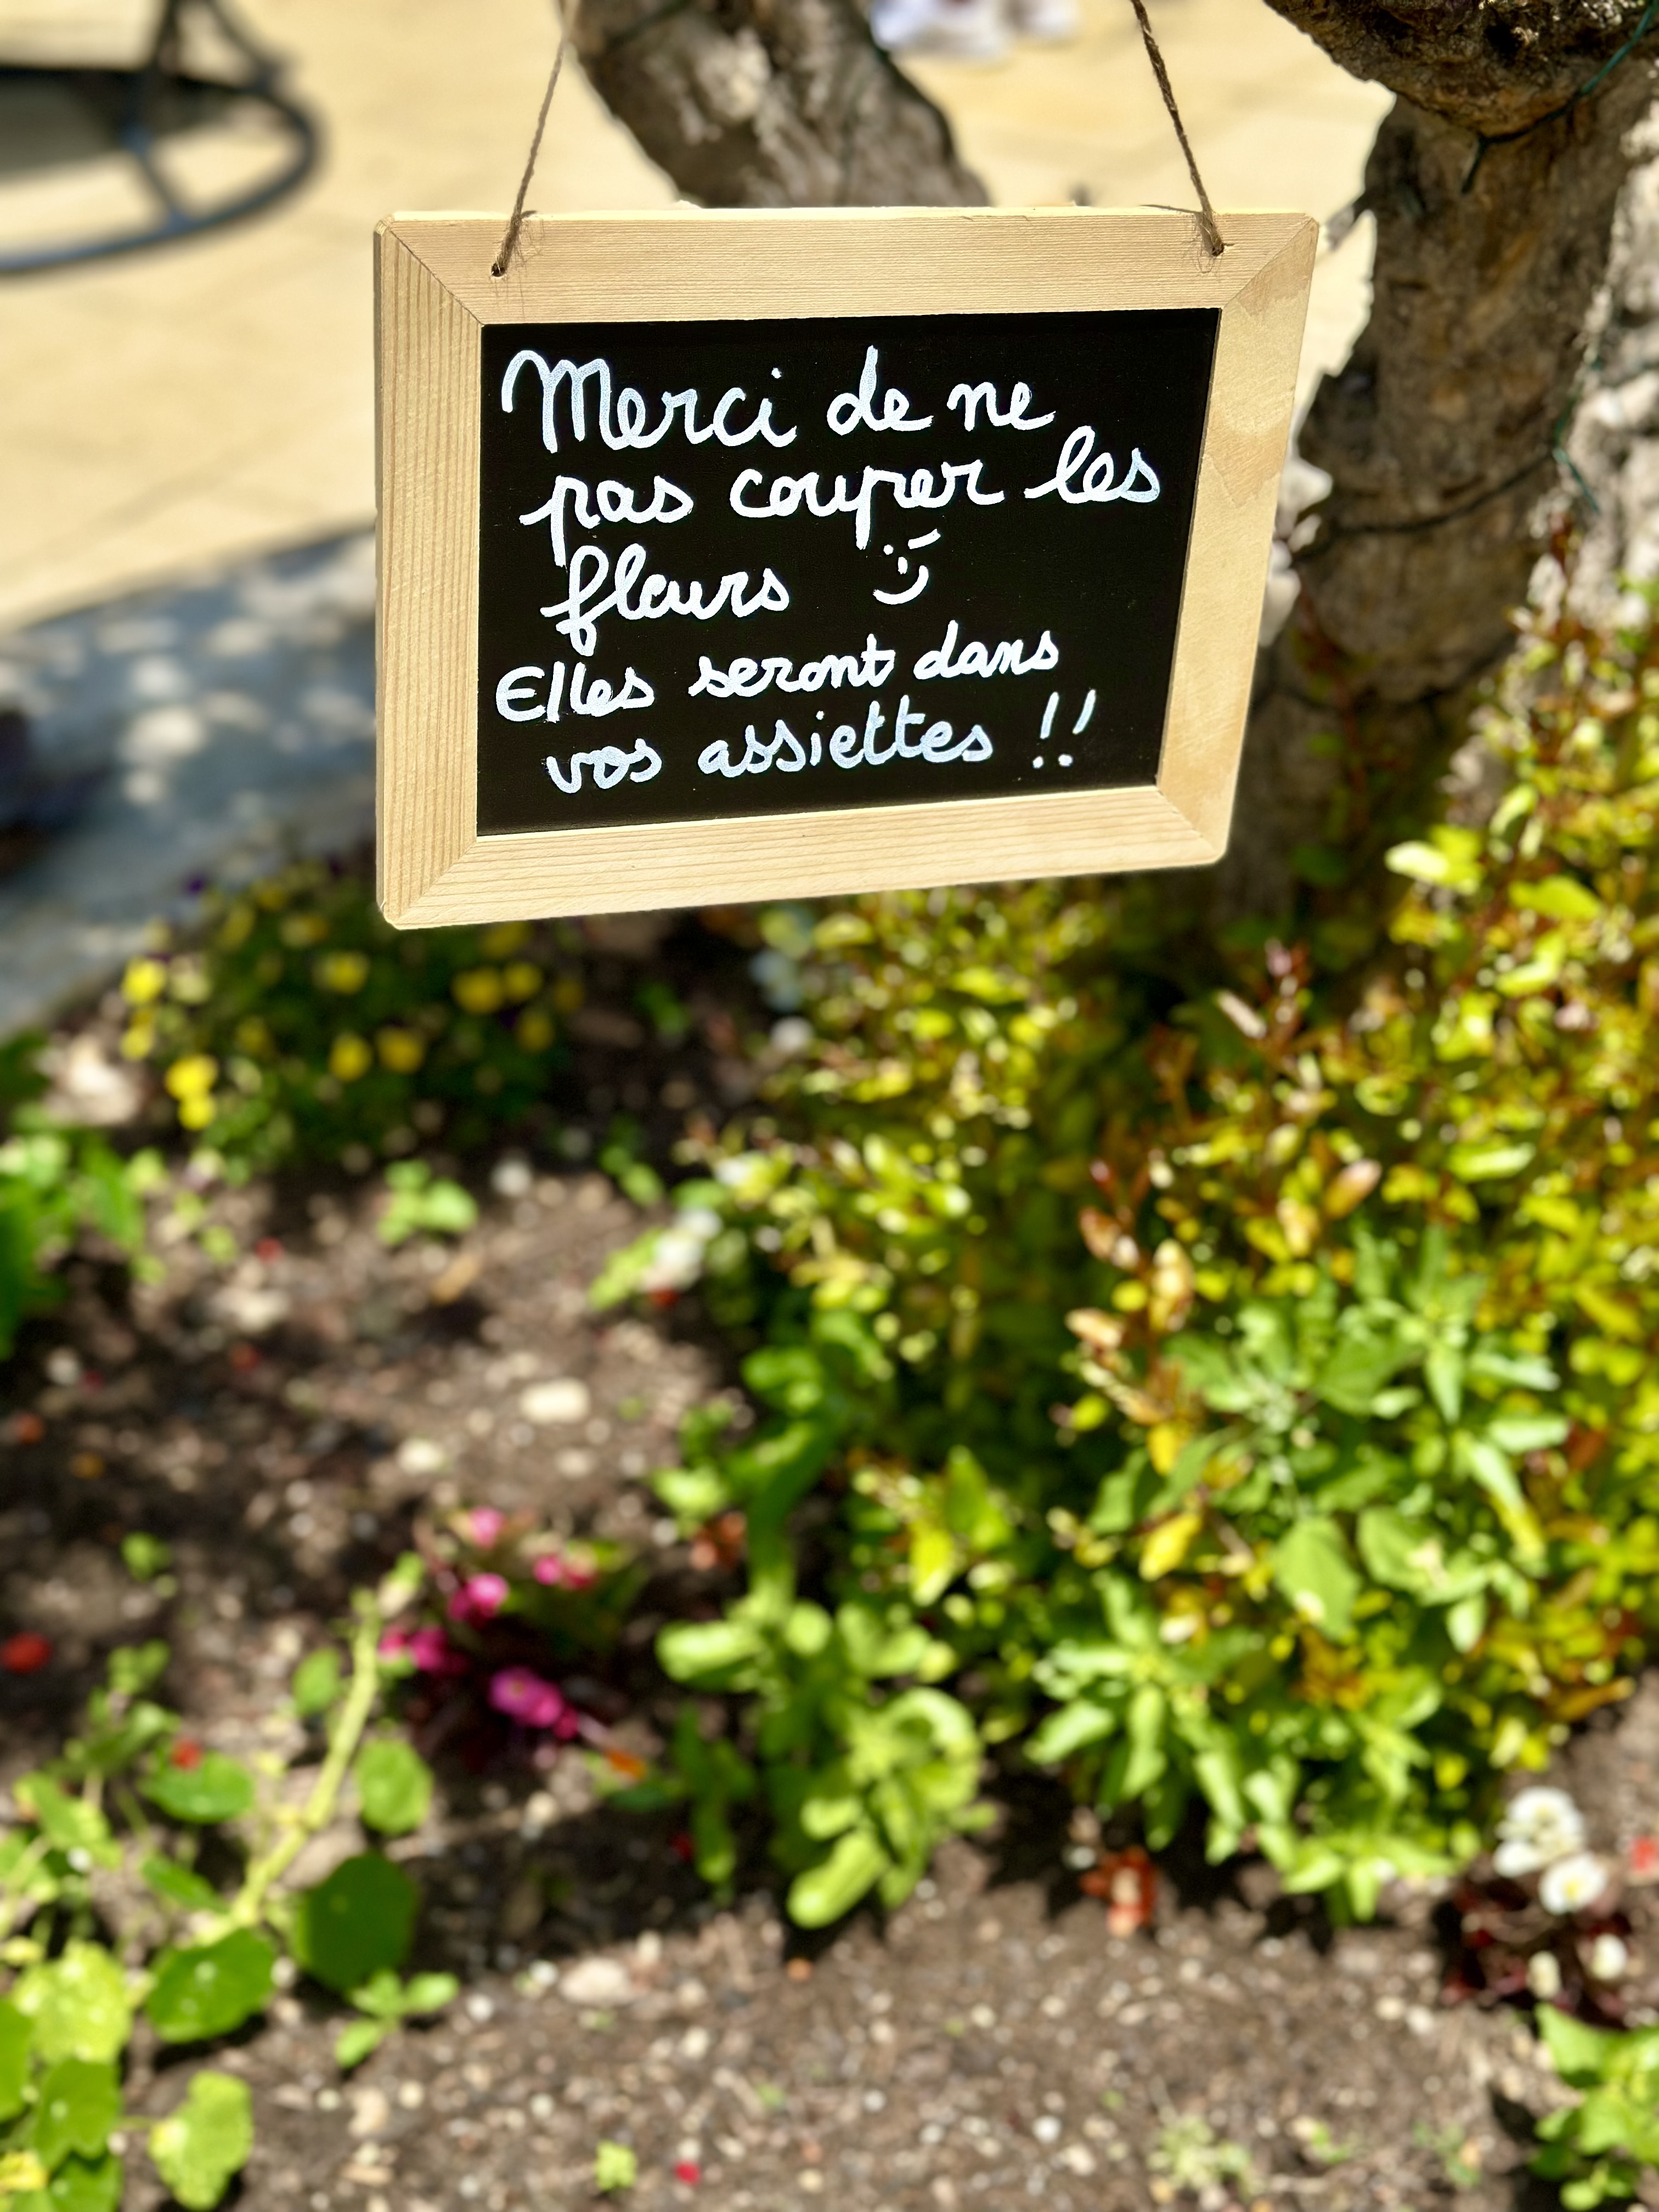 Merci de ne
pas couper les
fleurs
Elles seront dans
vos assiettes !!